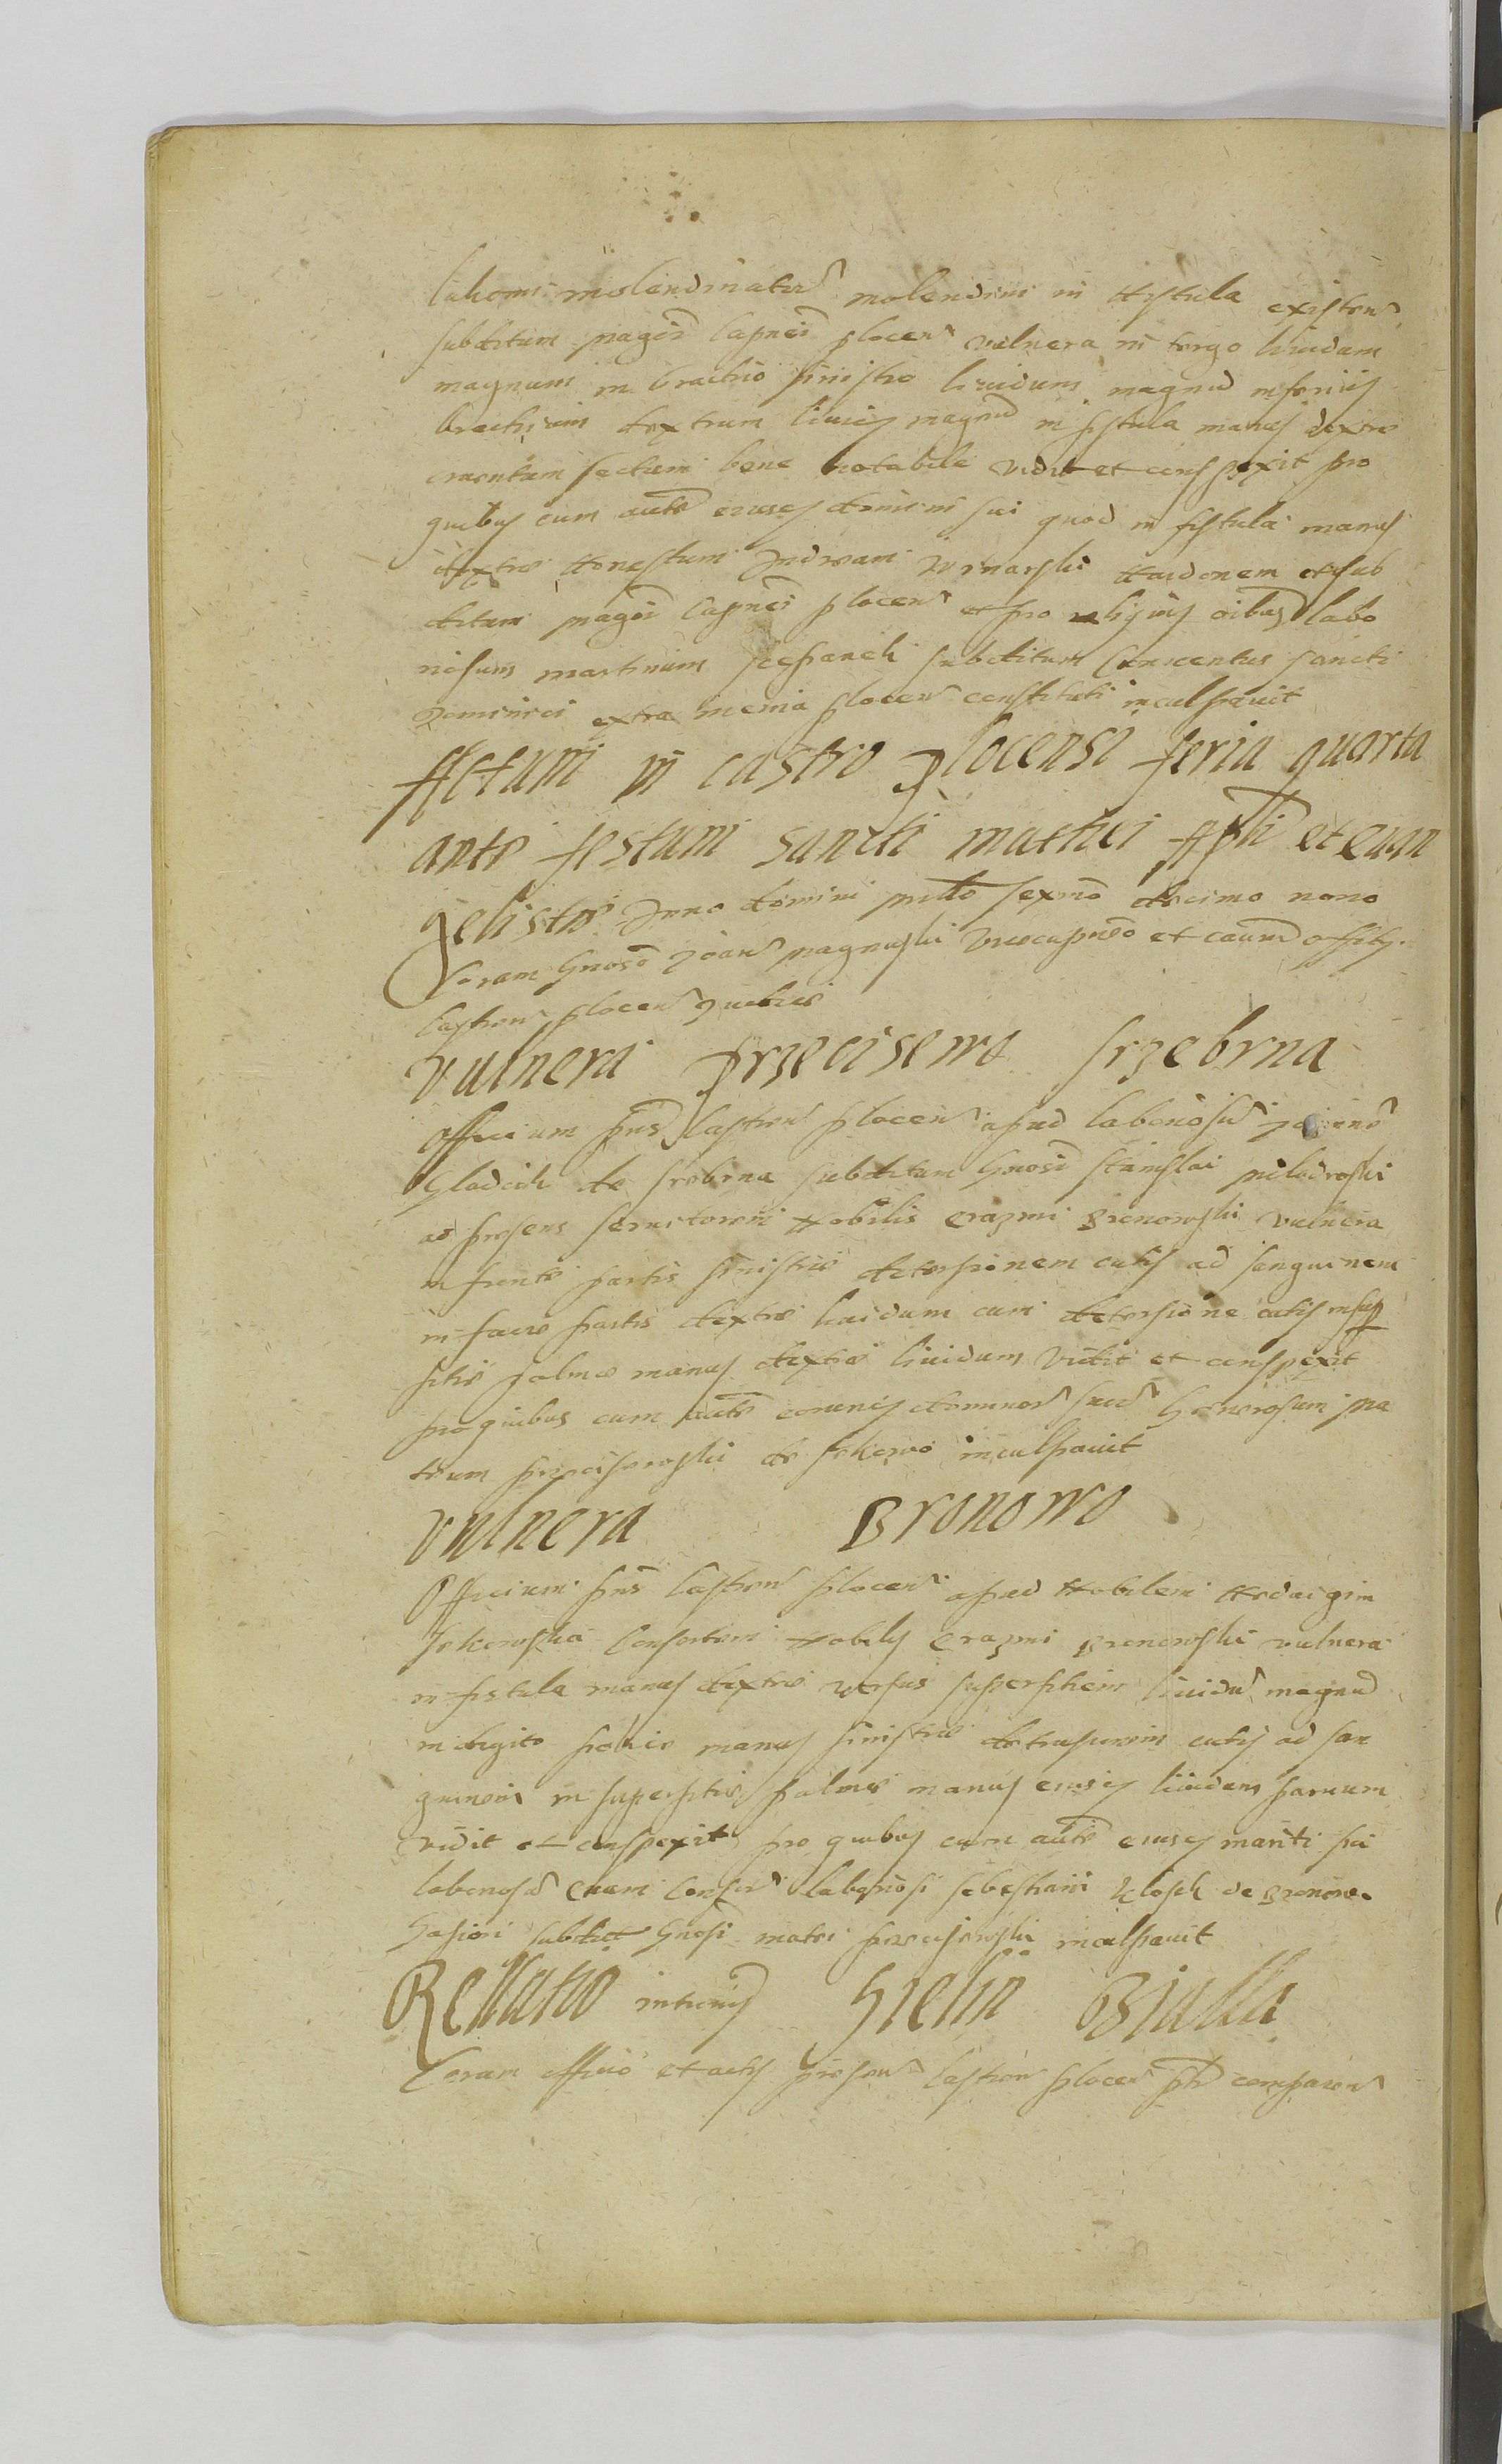 molendinator molendini in Histula existen
subditum magci Capnei plocen vulnera in tergo liuidum
magnum in brachio sinistro liuidum magnu inferius
brachium dextrum liuid magnu in fistula manus dextre
cruentum sectum bene notabile vidit et conspexit pro
quibus cum aucte eiusq domini sui quod in fistula manus
dextre Honestum Andream Winarski Haidonem et sub
ditum magci Capnei plocen et pro reliquis oibus labo
riosum martinum subditum Conuentus sancti
Dominici extra menia plocen constituti inculpauit
Actum in castro plocensi feria quarta
ante festum sancti mathei Apli et euan
geliste Anno domini millo sexmo decimo nono
Coram Gnoso Joan magnuski vicecapneo et caum offity
Castren plocen
vulnera przeciszewo srzebrna
Officium pns Castren plocen apud laboriosu
Gladich de srebrna subditum Gnosi stanislai
ad presens seruitorem Nobilis erazmi Bronowski vulnera
in fronte partis sinistre detersionem cutis ad sanguinem
in facie partis dextre liuidum cum detersione cutis insup
ficie palme manus dextre liuidum vidit et conspexit
pro quibus cum aucte eorundq dominor suor Generosum ma
teum przeciszewski de inculpauit
vulnera Bronowo
Officium pns Castren plocen apud Nobilem Heduigim
Consortem Nobilis erazmi Bronowski vulnera
in fistula manus dextre versus superficiem liuidu magnu
in digito police manus sinistre detrusionem cutis ad san
guinem in superficie palme manus eiusq liuidum paruum
vidit et conspexit pro quibus cum aucte eiusq mariti sui
laboriosa euam Consor laboriosi sebestiani Klosek de Bronowo
subdit Gnosi matei przeciszewski inculpauit
Rellatio intromis Sielin Bialla
Coram officio et actis presen Castren plocen ptr comparen